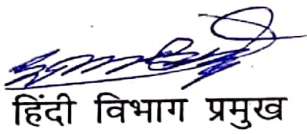 हिंदी विभाग प्रमुख